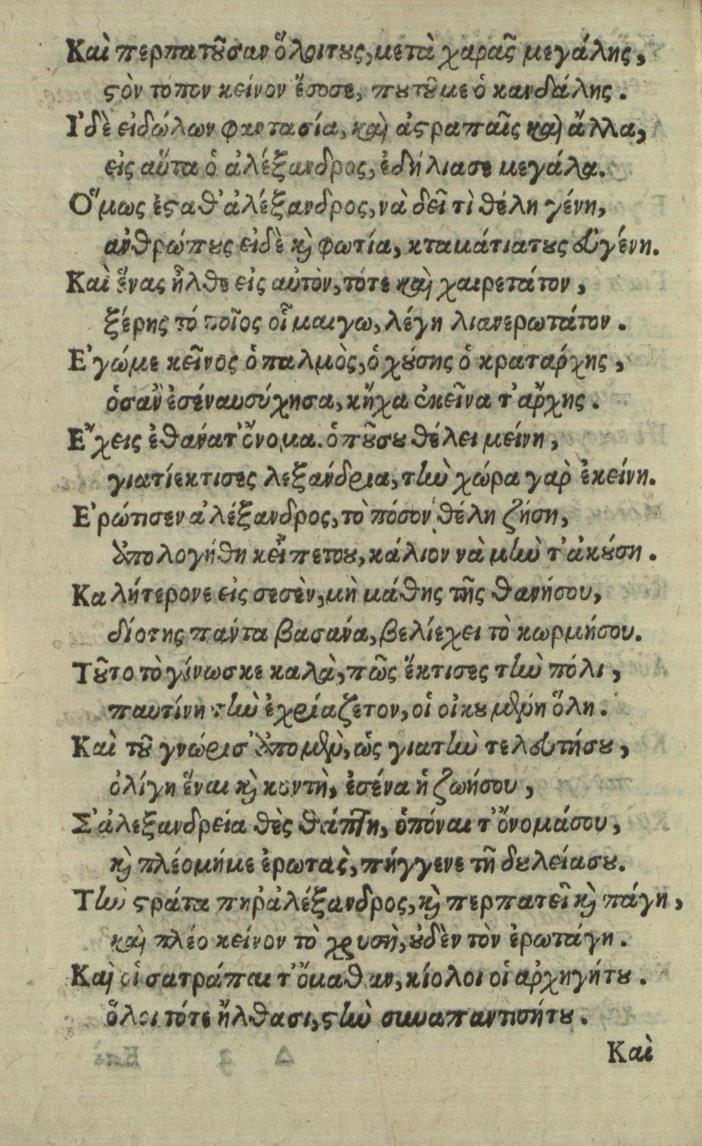 Καὶ περπατοῦσαν ὅλοιτους, μετὰ χαρᾶς μεγάλης,
στὸν τόπον κείνον ἔσωσε, ποῦτοῦμε ὁ κανδάλης.
Ι᾿δὲ εἰδώλων φαντασία, καὶ ἀστραπαῖς καὶ ἄλλα,
εἰς αὔτα ὁ ἀλέξανδρος, ἐδήλιασε μεγάλα.
Ο῞μως ἐσταθ' ἀλέξανδρος, νὰ δεῖ τὶ θέλη γένη,
ἀνθρώπους εἰδὲ καὶ φωτία, κταμάτιατους εὐγένη.
Καὶ ἕνας ἦλθε εἰς αὐτὸν, τότε καὶ χαιρετάτον,
ξέρης τό ποῖος οἶμαιγω, λέγη λιανερωτάτον.
Ε᾿γώμε κεῖνος ὁπαλμὸς, ὁχούσης ὁ κρατάρχης,
ὁσαν ἐσέναυσύχησα, κῆχα ἐκεῖνα τ' ἄρχης.
Ε῎χεις ἐθάνατ' ὄνομα. ὁποῦσου θέλει μείνη,
γιατίεκτισες λεξάνδρια, τὴν χώρα γαρ ἐκείνη.
Ε᾿ρώτισεν ἀλέξανδρος, τὸ πόσον θέλη ζήση,
ὑπολογήθη κεῖπετου, κάλιον νὰ μὴν τ' ἀκούση.
Καλήτερονε εἰς σεσὲν, μὴ μάθης τῆς θανήσου,
δίοτης παντα βασάνα, βελίεχει τὸ κωρμήσου.
Τοῦτο τὸ γίνωσκε καλὰ, πῶς ἔκτισες τὴν πόλι,
παυτίνη τὴν ἐχρίαζετον, οἱ οἰκουμένη ὅλη.
Καὶ τοῦ γνώρισ' ὑπομὲν, ὡς γιατὴν τελευτήσου,
ὀλίγη ἕναι καὶ κοντὴ, ἐσένα ἡ ζωήσου,
Σ' ἀλεξανδρεία θὲς θάπτη, ὁπόναι τ' ὄνομάσου,
καὶ πλέομήμε ἐρωτας, πήγγενε τῆ δουλείασου.
Τὴν στράτα πηρ' ἀλέξανδρος, καὶ περπατεῖ καὶ πάγη,
καὶ πλέο κείνον τὸ χρυσὴ, οὐδὲν τὸν ἐρωτάγη.
Καὶ οἱ σατράπαι τ' ὄμαθαν, κίολοι οἱ αρχηγήτου.
ὅλοι τότε ἤλθασι, στὴν συναπαντισήτου.
Καὶ